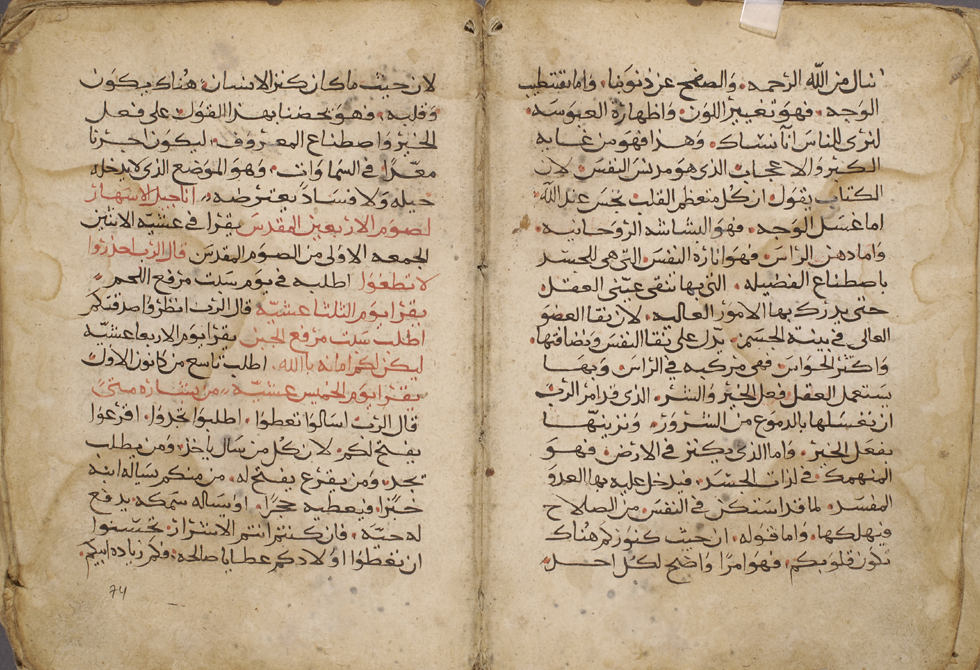 ننال من الله الرحمه والصفح عن ذنوبنا واما تقطيب
الوجه فهو تغيير اللون واظهارة العبوسه
لنرى للناس اننا نساك وهذا فهو من غايه
الكبر والاعجاب الذي هو مدنس النفس لان
الكتاب يقول ان كل متعظم القلب نجس عند الله
اما غسل الوجه فهو البشاشه الروحانيه
واما دهن الراس فهو انارة النفس التي هي للجسد
باصطناع الفضيله التي بها تنقى عيني العقل
حتى يدرك بها الامور العاليه لان نقا العضو
العالي في بنية الجسم يدل على نقا النفس ونضافتها
واكثر الحواس فهي مركبه في الراس وبها
يستعمل العقل فعل الخير والشر الذي قد امر الرب
ان نغسلها بالدموع من الشرور ونزينها
بفعل الخير واما الذي يكنز في الارض فهو
المنهمك في لذات الجسد فيدخل عليه بها العدو
المفسد لما قد استكن في النفس من الصلاح
فيهلكها واما قوله ان حيث كنوزكم هناك
تكون قلوبكم فهو امرا واضح لكل احد
لان حيث ما كان كنز الانسان هناك يكون
وقلبه فهو يحضنا بهذا القول على فعل
الخير واصطناع المعروف ليكون خيرنا
معدا في السماوات وهو الموضع الذي لا يدخله
حيله ولا فساد يعترضه اناجيل الاسهار
لصوم الاربعين المقدس يقرا في عشية الاتنين
الجمعه الاولى من الصوم المقدس قال الرب احذروا
لا تطغوا اطلبه في يوم سبت مرفع اللحم
يقرا يوم الثلثا عشيه قال الرب انظروا صدقتكم
اطلب سبت مرفع الجبن يقرا يوم الاربعا عشيه
ليكن لكم امانه بالله اطلب تاسع من كانون الاول
يقرا يوم الخميس عشيه من بشارة متى
قال الرب اسالوا تعطوا اطلبوا تجدوا اقرعوا
يفتح لكم لان كل من سال ياخذ ومن يطلب
يجد ومن يقرع يفتح له من منكم يساله ابنه
خبزا فيعطيه حجرا او يساله سمكه يدفع
له حيه فان كنتم انتم الاشرار تحسنوا
ان تعطوا اولادكم عطايا صالحه فكم زياده ابيكم
74